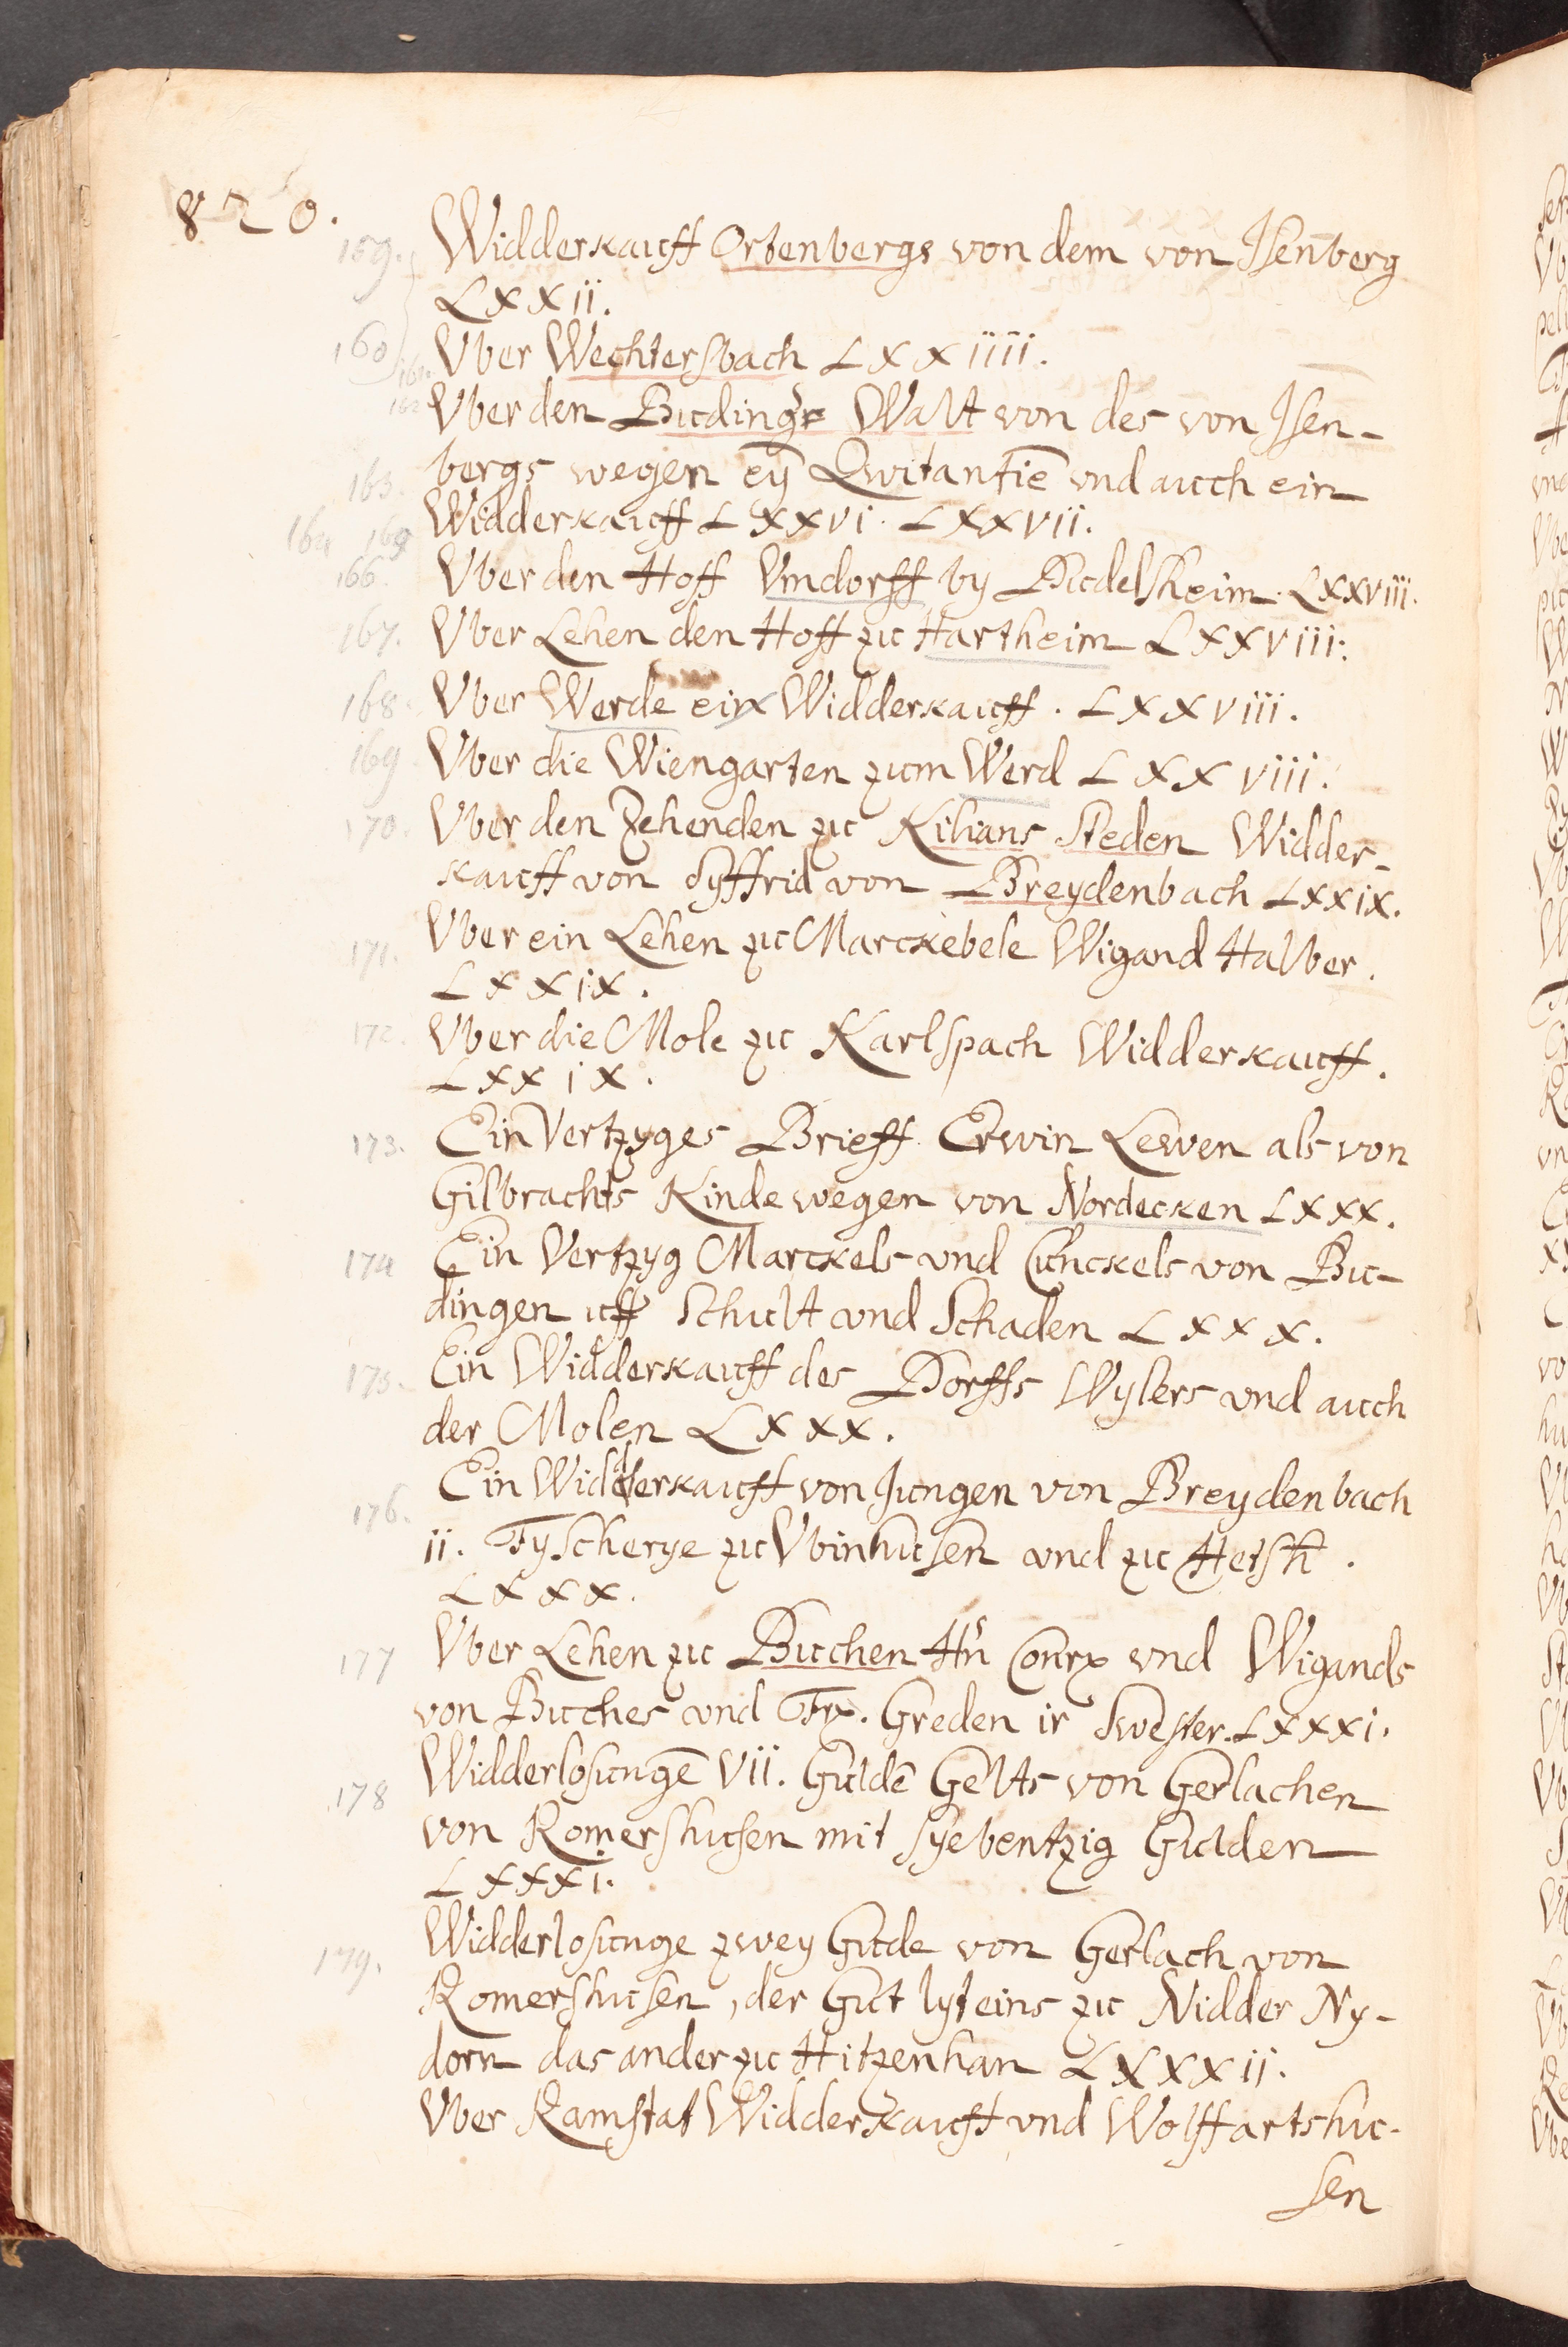 820.
159. Widderkauff Ortenbergs von dem von Isenberg
LXXII.
160 Vber Wechtersbach LXXIIII.
161.
162 Vber den Budingr Walt von des von Isen-
bergs wegen ey̅ Qwitantie̅ vnd auch ein
163. Widderkauff LXXVI. LXXVII.
164 165
166. Vber den Hoff Vmdorff by Dudelsheim LXXVIII.
167. Vber Lehen den Hoff zu Hartheim LXXVIII.
168. Vber Werde ein Widderkauff. LXXVIII.
169 Vber die Wiengarten zum Werd LXXVIII.
170. Vber den Zehenden zu Kilians steden Widder-
kauff von Syffrid von Breydenbach LXXIX.
171. Vber ein Lehen zu Marckebele Wigand Halber.
LXXIX.
172. Vber die Mole zu Karlspach Widderkauff.
LXXIX.
173. Ein Vertzyges Brieff Erwin Lewen als von
Gilbrachts Kinde wegen von Nordecken LXXX.
174 Ein Vertzyg Marckels vnd Cunckels von Bu-
dingen uff Schult vnd Schaden LXXX.
175. Ein Widderkauff des Dorffs Wylers vnd auch
der Molen LXXX.
176. Ein Widderkauff von Jungen von Breydenbach
II. Fyscherye zu Vbinhusen vnd zu
LXXX.
177 Vber Lehen zu Buchen Hn̅ vnd Wigands
von Buches vnd Greden ir Swester. LXXXI.
178 Widderlosunge̅ VII. Gulde̅ Gelts von Gerlachen
von Romershusen mit syebentzig Gulden
LXXXI.
179. Widderlosunge zwey Gude von Gerlach von
Romershusen, der Gut lyt eins zu Nidder Ny-
dorn das ander zu Hitzenhan LXXXII.
Vber Ramstat Widderkauff vnd Wolffartshu-
sen